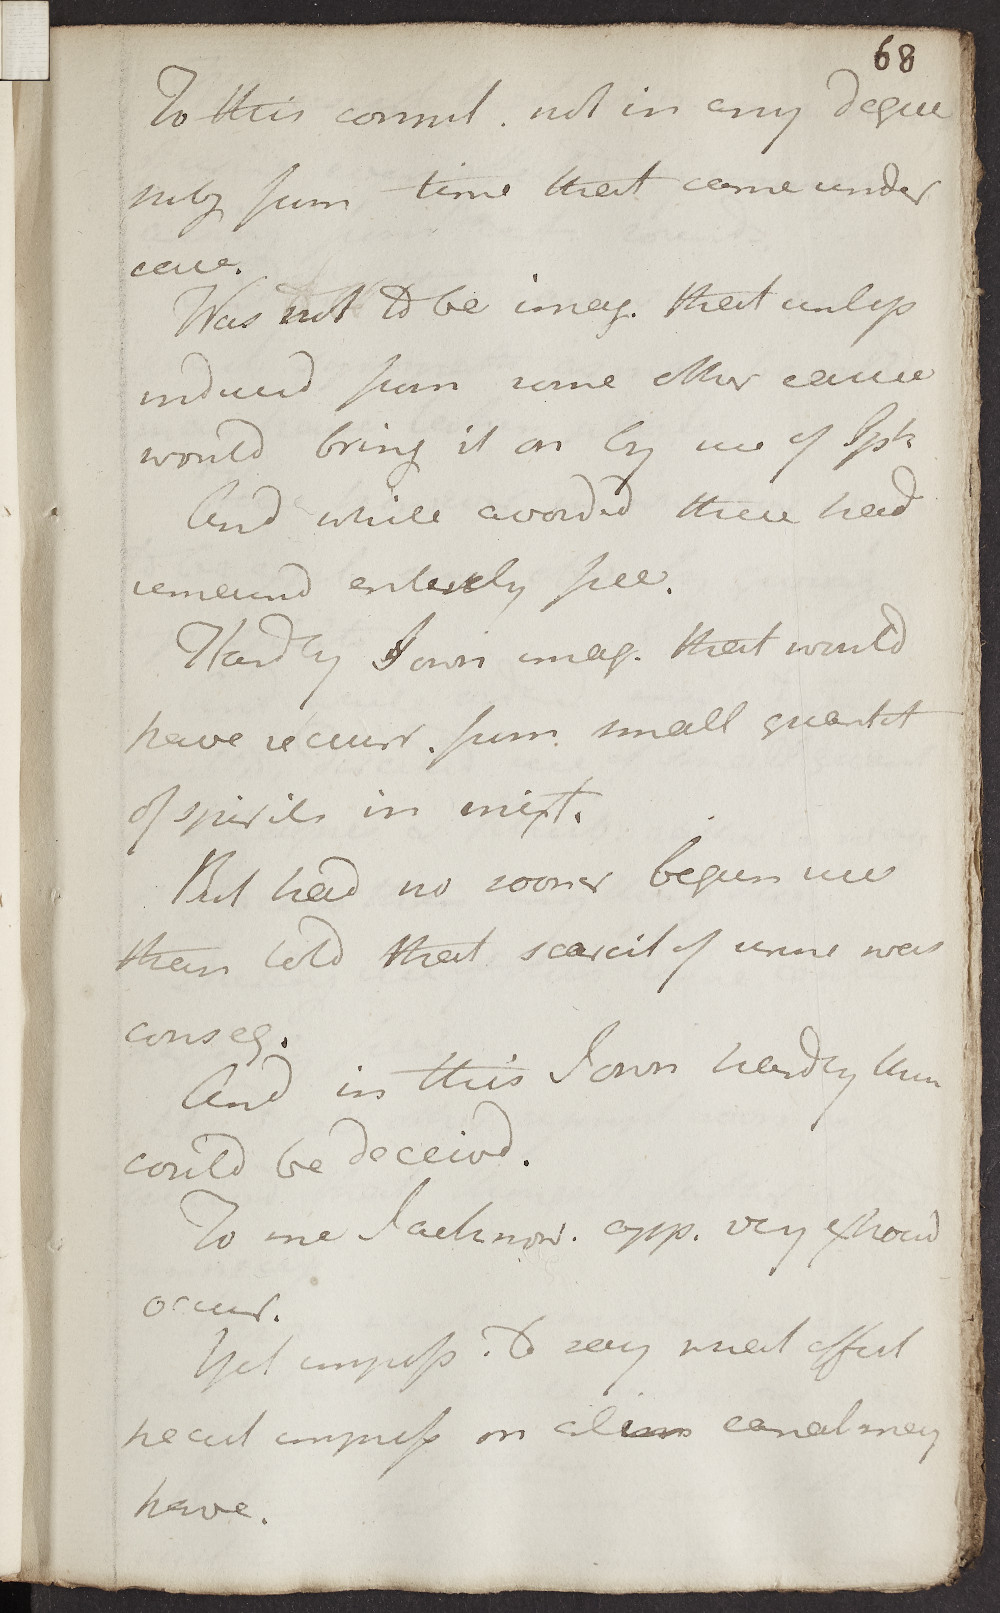 68
To this commt. not in any degree
subj from time that came under
care.
Was not to be imag. that unless
induced from some other cause
would bring it on by use of Spts
And while avoided these had
remaind entirely free.
Hardly I own imag. that would
have recurr. from small quantit
of spirits in mixt.
But had no sooner begun use
than told that scarcit of urine was
conseq.
And in this I own hardly thin
could be deceivd.
To me I acknow. app. very extraord
occurr.
Yet imposs. to say what effect
peculi impress on alim canal may
have.